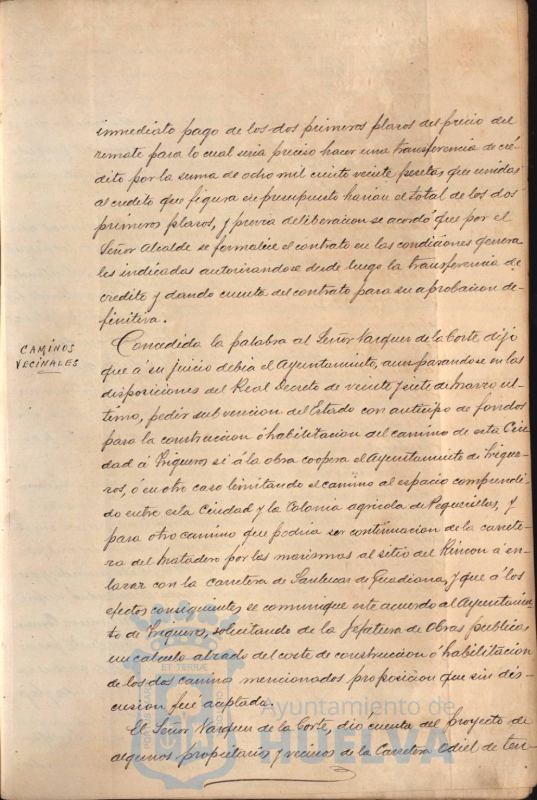 inmediato pago de los dos primeros plazos del precio del
remate para lo cual seria preciso hacer una transferencia de cré-
dito por la suma de ocho mil ciento veinte pesetas que unidas
al credito que figura en presupuesto harian el total de los dos
primeros plazos, y previa deliberacion se acordó que por el
Señor Alcalde se formalice el contrato en las condiciones genera
les indicadas autorizandose desde luego la transferencia de
credito y dando cuenta del contrato para su aprobacion de-
finitiva.
CAMINOS
VECINALES
Concedida la palabra al Señor Vazquez de la Corte dijo
que á su juicio debia el Ayuntamiento, amparandose en las
disposiciones del Real Decreto de veinte y siete de marzo ul-
timo, pedir subvencion del Estado con anticipo de fondos
para la construccion ó habilitacion del camino de esta Ciu
dad á Trigueros si á la obra coopera el Ayuntamiento de Trigue-
ros, ó en otro caso limitando el camino al espacio comprendi-
do entre esta Ciudad y la Colonia agricola de Peguerillas, y
para otro camino que podria ser continuacion de la carrete-
ra del Matadero por las marismas al sitio del Rincon á en-
lazar con la carretera de Sanlucar de Guadiana, y que á los
efectos consiguientes se comunique este acuerdo al Ayuntamien
to de Trigueros, solicitando de la Jefatura de Obras publicas
un calculo alzado del coste de construccion ó habilitacion
de los dos caminos mencionados proposicion que sin dis-
cusion fué aceptada.
El Señor Vazquez de la Corte, dió cuenta del proyecto de
algunos propietarios y vecinos de la Carretera Odiel de ten-
Ayuntamiento de
HUELVA